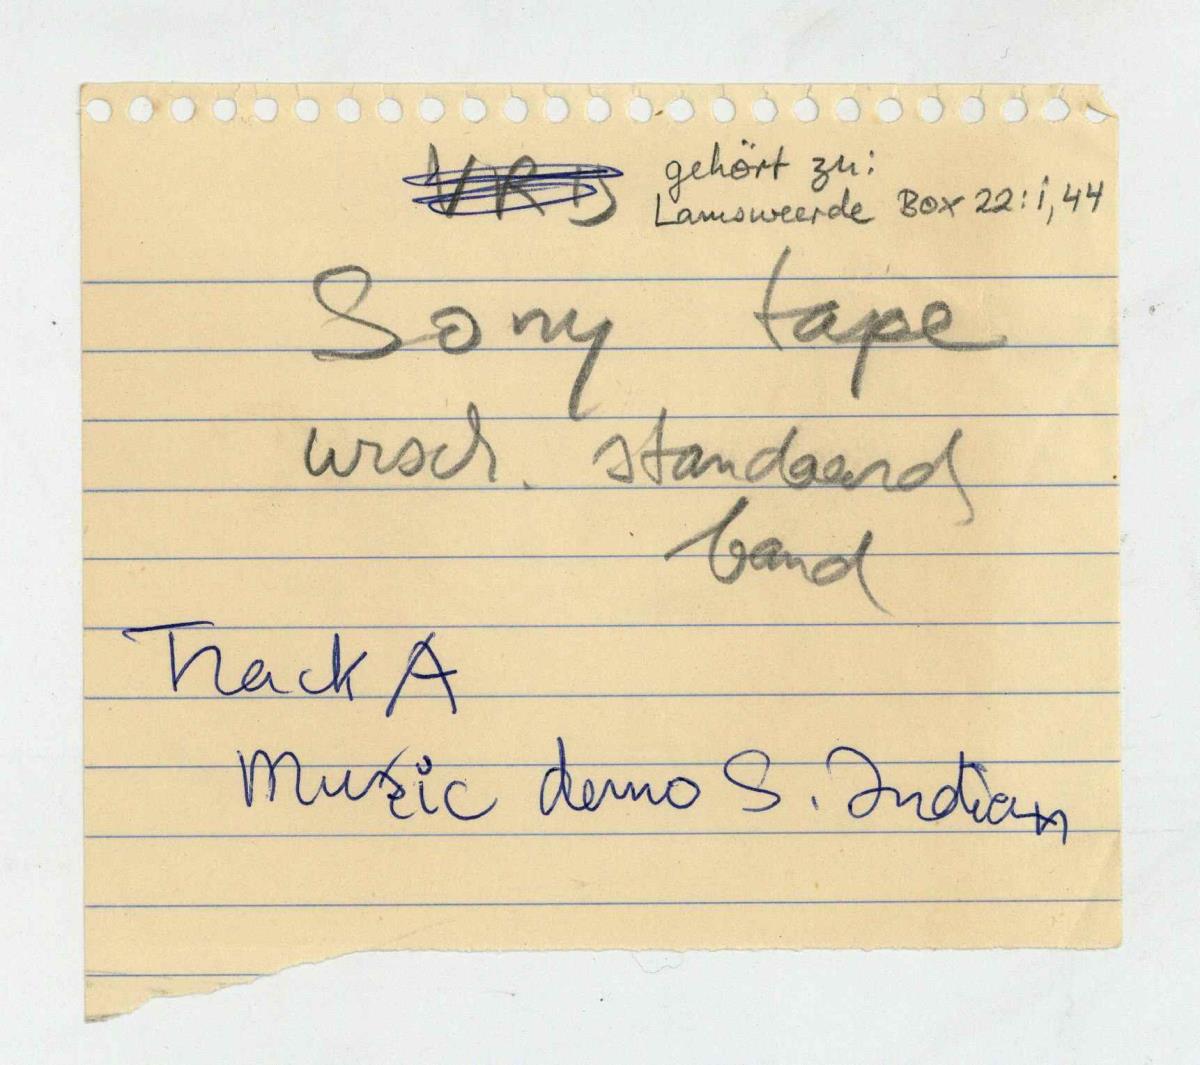 VRIJ gehört zu:
Lamsweerde Box 22: i, 44
Sony tape
wrsch. standaard
band
Track A
Muzic demo S. Indian